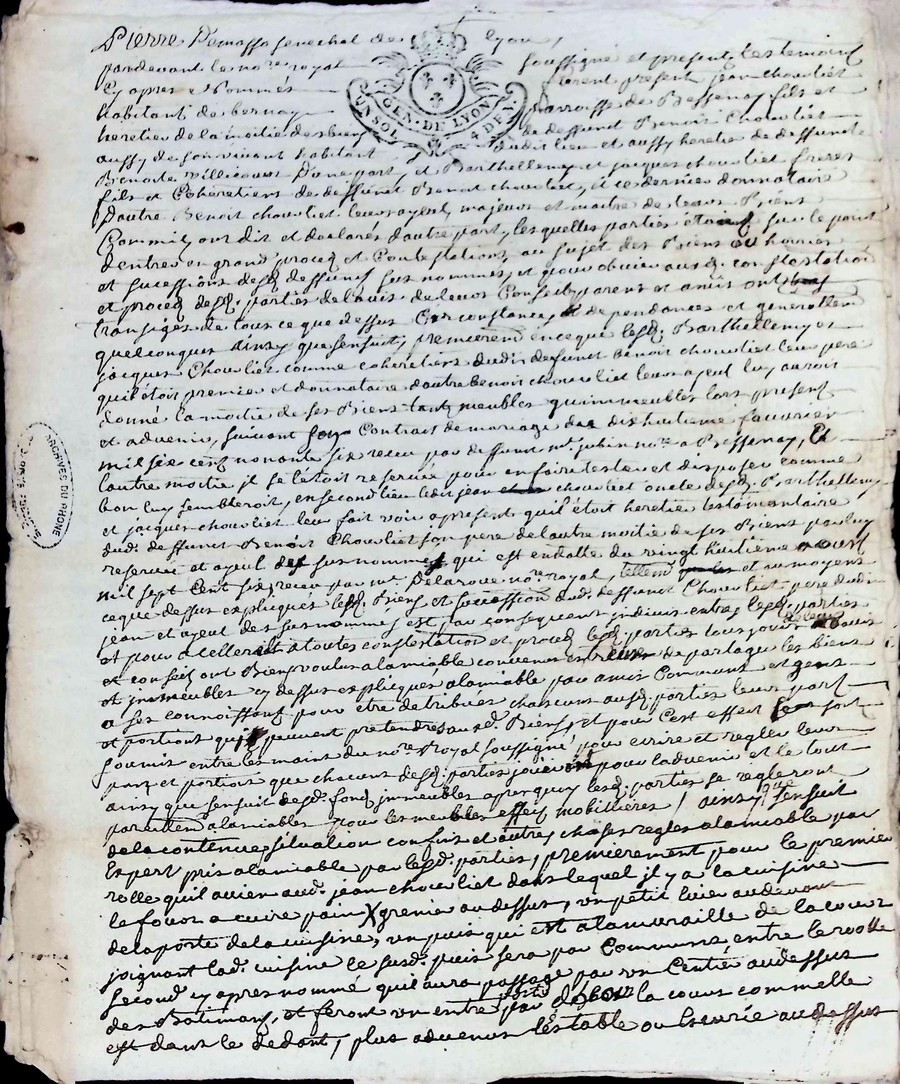 Pierre Demasso senechal de lyon,
pardevant le no.re royal soussigné et present les temoins
cy apres Nommés furent present jean chouvliet
habitant de bernay parroisse de Bessenay fils et
heretier de la moitie des biens de deffunct Benoist Chouvliet
aussy de son vivant habitant dudit lieu et aussy heretier de deffuncte
Benoite Villecourt D'une part, et Barthellemy et jacques chouvliet freres
fils et Coheretiers de deffunct Benoit chouvliet, et ce dernier donnataire
D'autre Benoit chouvliet leur ayeul, majeurs et maitre de leurs Biens
Comm'ils ont dit et declarés d'autre part, lesquelles parties etant sur le point
d'entrer en grand procez et Contestations, au sujet des Biens ou hoiries
et successions desd. deffuncts sus nommés, et pour obvier auxd. contestation
et procez desd. parties de l'avis de leurs Conseils parens et amis ont
transigés de tous ce que dessus Circonstances et dependances et generallem
quelconques ainsy que s'ensuit, premierem en ce que lesd. Barthellemy et
jacques Chouvliet comme coheretiers dudit deffunct benoit chouvliet leur pere
qu'il étoit premier et donnataire d'autre benoit chouvliet leur ayeul luy auroit
donné la moitie de ses Biens tant meubles qu'immeubles lors present
et advenir, suivant son Contrait de mariage du dix huitieme fauvrier
mil six cent nonante six receu par deffunt m.e jubin no.re a Bessenay, Et
l'autre moitie il se l'etoit reservée pour en faire tester et disposer comme
bon luy sembleroit, en second lieu led. jean chouvliet oncle desd. Barthellemy
et jacques chouvliet leur fait voir a present qu'il étoit heretier testamentaire
dud. deffunct Benoit Chouvliet son pere de l'autre moitie de ses Biens par luy
reservée et ayeul des sus nommés qui est en datte du vingt huitième aoust
mil sept Cent six receu par m.e Delaroue no.re royal, tellem et au moyens
ce que dessus expliqués lesd. Biens et succession dud. deffunct Chouvliet pere dud.
jean et ayeul des sus nommés est par consequent indivis entre lesd. parties
et pour acellerait a toutes constestation et procez lesd. parties tous jours
et conseil ont Bien voulus alamiable convenir entre de partager les biens
et immeubles cy dessus expliqués alamiable par amis Communt et gens
a ses connoissant pour être detribués chascuns auxd. parties leur part
et portions qu'ils peuvent pretendres aud. Biens, et pour C'est effect sont
fournit entre les mains du no.re Royal soussigné pour ecrire et regler leur
part et portions que chacuns desd. parties jouiront pour l'advenir et le tout
ainsy que s'ensuit desd. fond immeubles apres quoy lesd. parties se regleront
pareillem alamiables pour les meubles effets mobillieres, ainsy que s'ensuit
de la contenue, situation confins et autres choses regles alamiable par
Expert pris alamiable par lesd. parties, premierement pour le premier
rolle qu'il avien aud. jean chouvliet dans lequel il y a la cuisine
le fourt a cuire pain, grenier au dessus, un petit luier au devant
de la porte de la cuisine, un puis qui est a la muraille de la cour
joignant lad. cuisine le susd. puis sera par Communs, entre le rolle
second cy apres nommé qu'il aura passage par un Centier au dessus
des Batimans, et feront un entre par dehors la cour commelle
est dans le dedant, plus advenir l'estable ou Escurié au dessus
GEN. DE LYON
UN SOL
4 DE
ARCHIVES DU RHONE